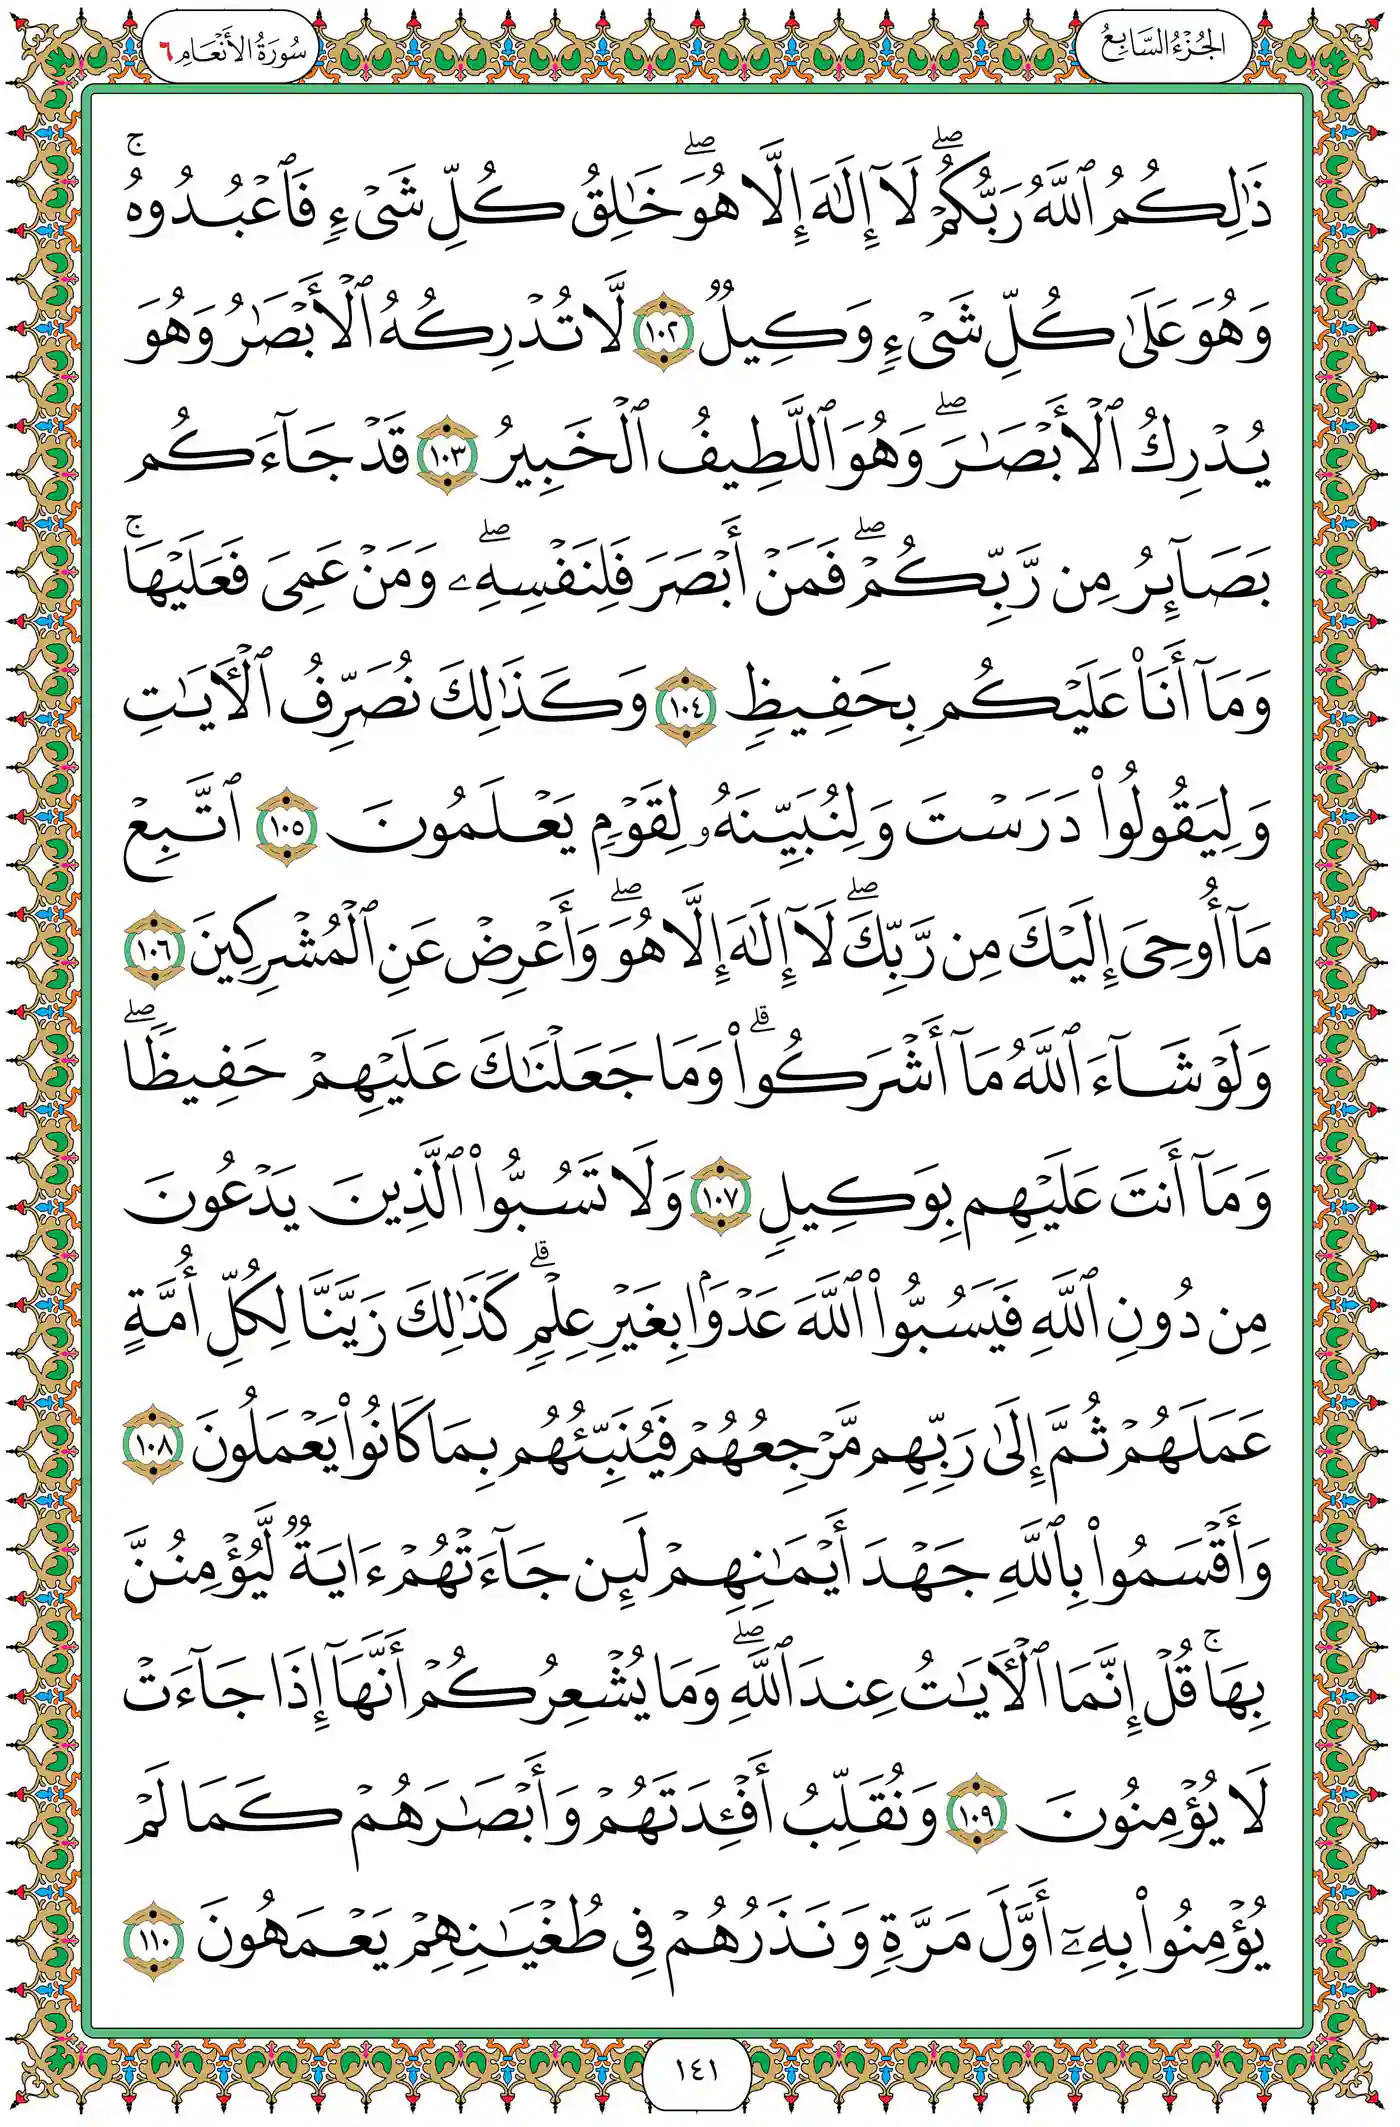 الجُزْءُ السَّابِعُ
سُورَةُ الأَنْعَامِ ٦
ذَٰلِكُمُ ٱللَّهُ رَبُّكُمْۖ لَآ إِلَٰهَ إِلَّا هُوَۖ خَٰلِقُ كُلِّ شَىْءٍ فَٱعْبُدُوهُۚ
وَهُوَ عَلَىٰ كُلِّ شَىْءٍ وَكِيلٌ ١٠٢ لَّا تُدْرِكُهُ ٱلْأَبْصَٰرُ وَهُوَ
يُدْرِكُ ٱلْأَبْصَٰرَۖ وَهُوَ ٱللَّطِيفُ ٱلْخَبِيرُ ١٠٣ قَدْ جَآءَكُم
بَصَآئِرُ مِن رَّبِّكُمْۖ فَمَنْ أَبْصَرَ فَلِنَفْسِهِۦۖ وَمَنْ عَمِىَ فَعَلَيْهَاۚ
وَمَآ أَنَا۠ عَلَيْكُم بِحَفِيظٍ ١٠٤ وَكَذَٰلِكَ نُصَرِّفُ ٱلْأَيَٰتِ
وَلِيَقُولُوا۟ دَرَسْتَ وَلِنُبَيِّنَهُۥ لِقَوْمٍ يَعْلَمُونَ ١٠٥ ٱتَّبِعْ
مَآ أُوحِىَ إِلَيْكَ مِن رَّبِّكَۖ لَآ إِلَٰهَ إِلَّا هُوَۖ وَأَعْرِضْ عَنِ ٱلْمُشْرِكِينَ ١٠٦
وَلَوْ شَآءَ ٱللَّهُ مَآ أَشْرَكُوا۟ۗ وَمَا جَعَلْنَٰكَ عَلَيْهِمْ حَفِيظًاۖ
وَمَآ أَنتَ عَلَيْهِم بِوَكِيلٍ ١٠٧ وَلَا تَسُبُّوا۟ ٱلَّذِينَ يَدْعُونَ
مِن دُونِ ٱللَّهِ فَيَسُبُّوا۟ ٱللَّهَ عَدْوًۢا بِغَيْرِ عِلْمٍۗ كَذَٰلِكَ زَيَّنَّا لِكُلِّ أُمَّةٍ
عَمَلَهُمْ ثُمَّ إِلَىٰ رَبِّهِم مَّرْجِعُهُمْ فَيُنَبِّئُهُم بِمَا كَانُوا۟ يَعْمَلُونَ ١٠٨
وَأَقْسَمُوا۟ بِٱللَّهِ جَهْدَ أَيْمَٰنِهِمْ لَئِن جَآءَتْهُمْ ءَايَةٌ لَّيُؤْمِنُنَّ
بِهَاۚ قُلْ إِنَّمَا ٱلْأَيَٰتُ عِندَ ٱللَّهِۖ وَمَا يُشْعِرُكُمْ أَنَّهَآ إِذَا جَآءَتْ
لَا يُؤْمِنُونَ ١٠٩ وَنُقَلِّبُ أَفْـِٔدَتَهُمْ وَأَبْصَٰرَهُمْ كَمَا لَمْ
يُؤْمِنُوا۟ بِهِۦٓ أَوَّلَ مَرَّةٍ وَنَذَرُهُمْ فِى طُغْيَٰنِهِمْ يَعْمَهُونَ ١١٠
١٤١